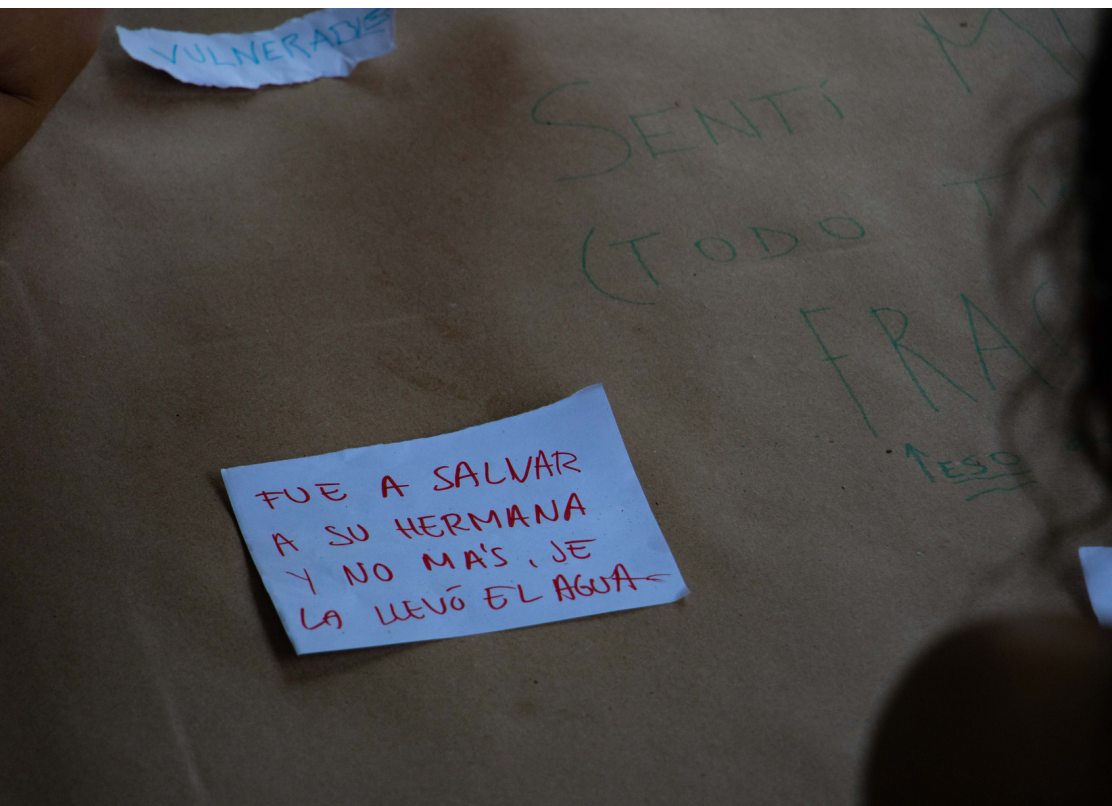 VULNERABLE
SENTÍ
(TODO
↑ESO
FUE A SALVAR
A SU HERMANA
Y NO MÁS, SE
LA LLEVÓ EL AGUA